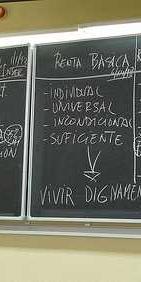 RENTA BASICA
- INDIVIDUAL
- UNIVERSAL
- INCONDICIONAL
- SUFICIENTE
VIVIR DIGNAMEN